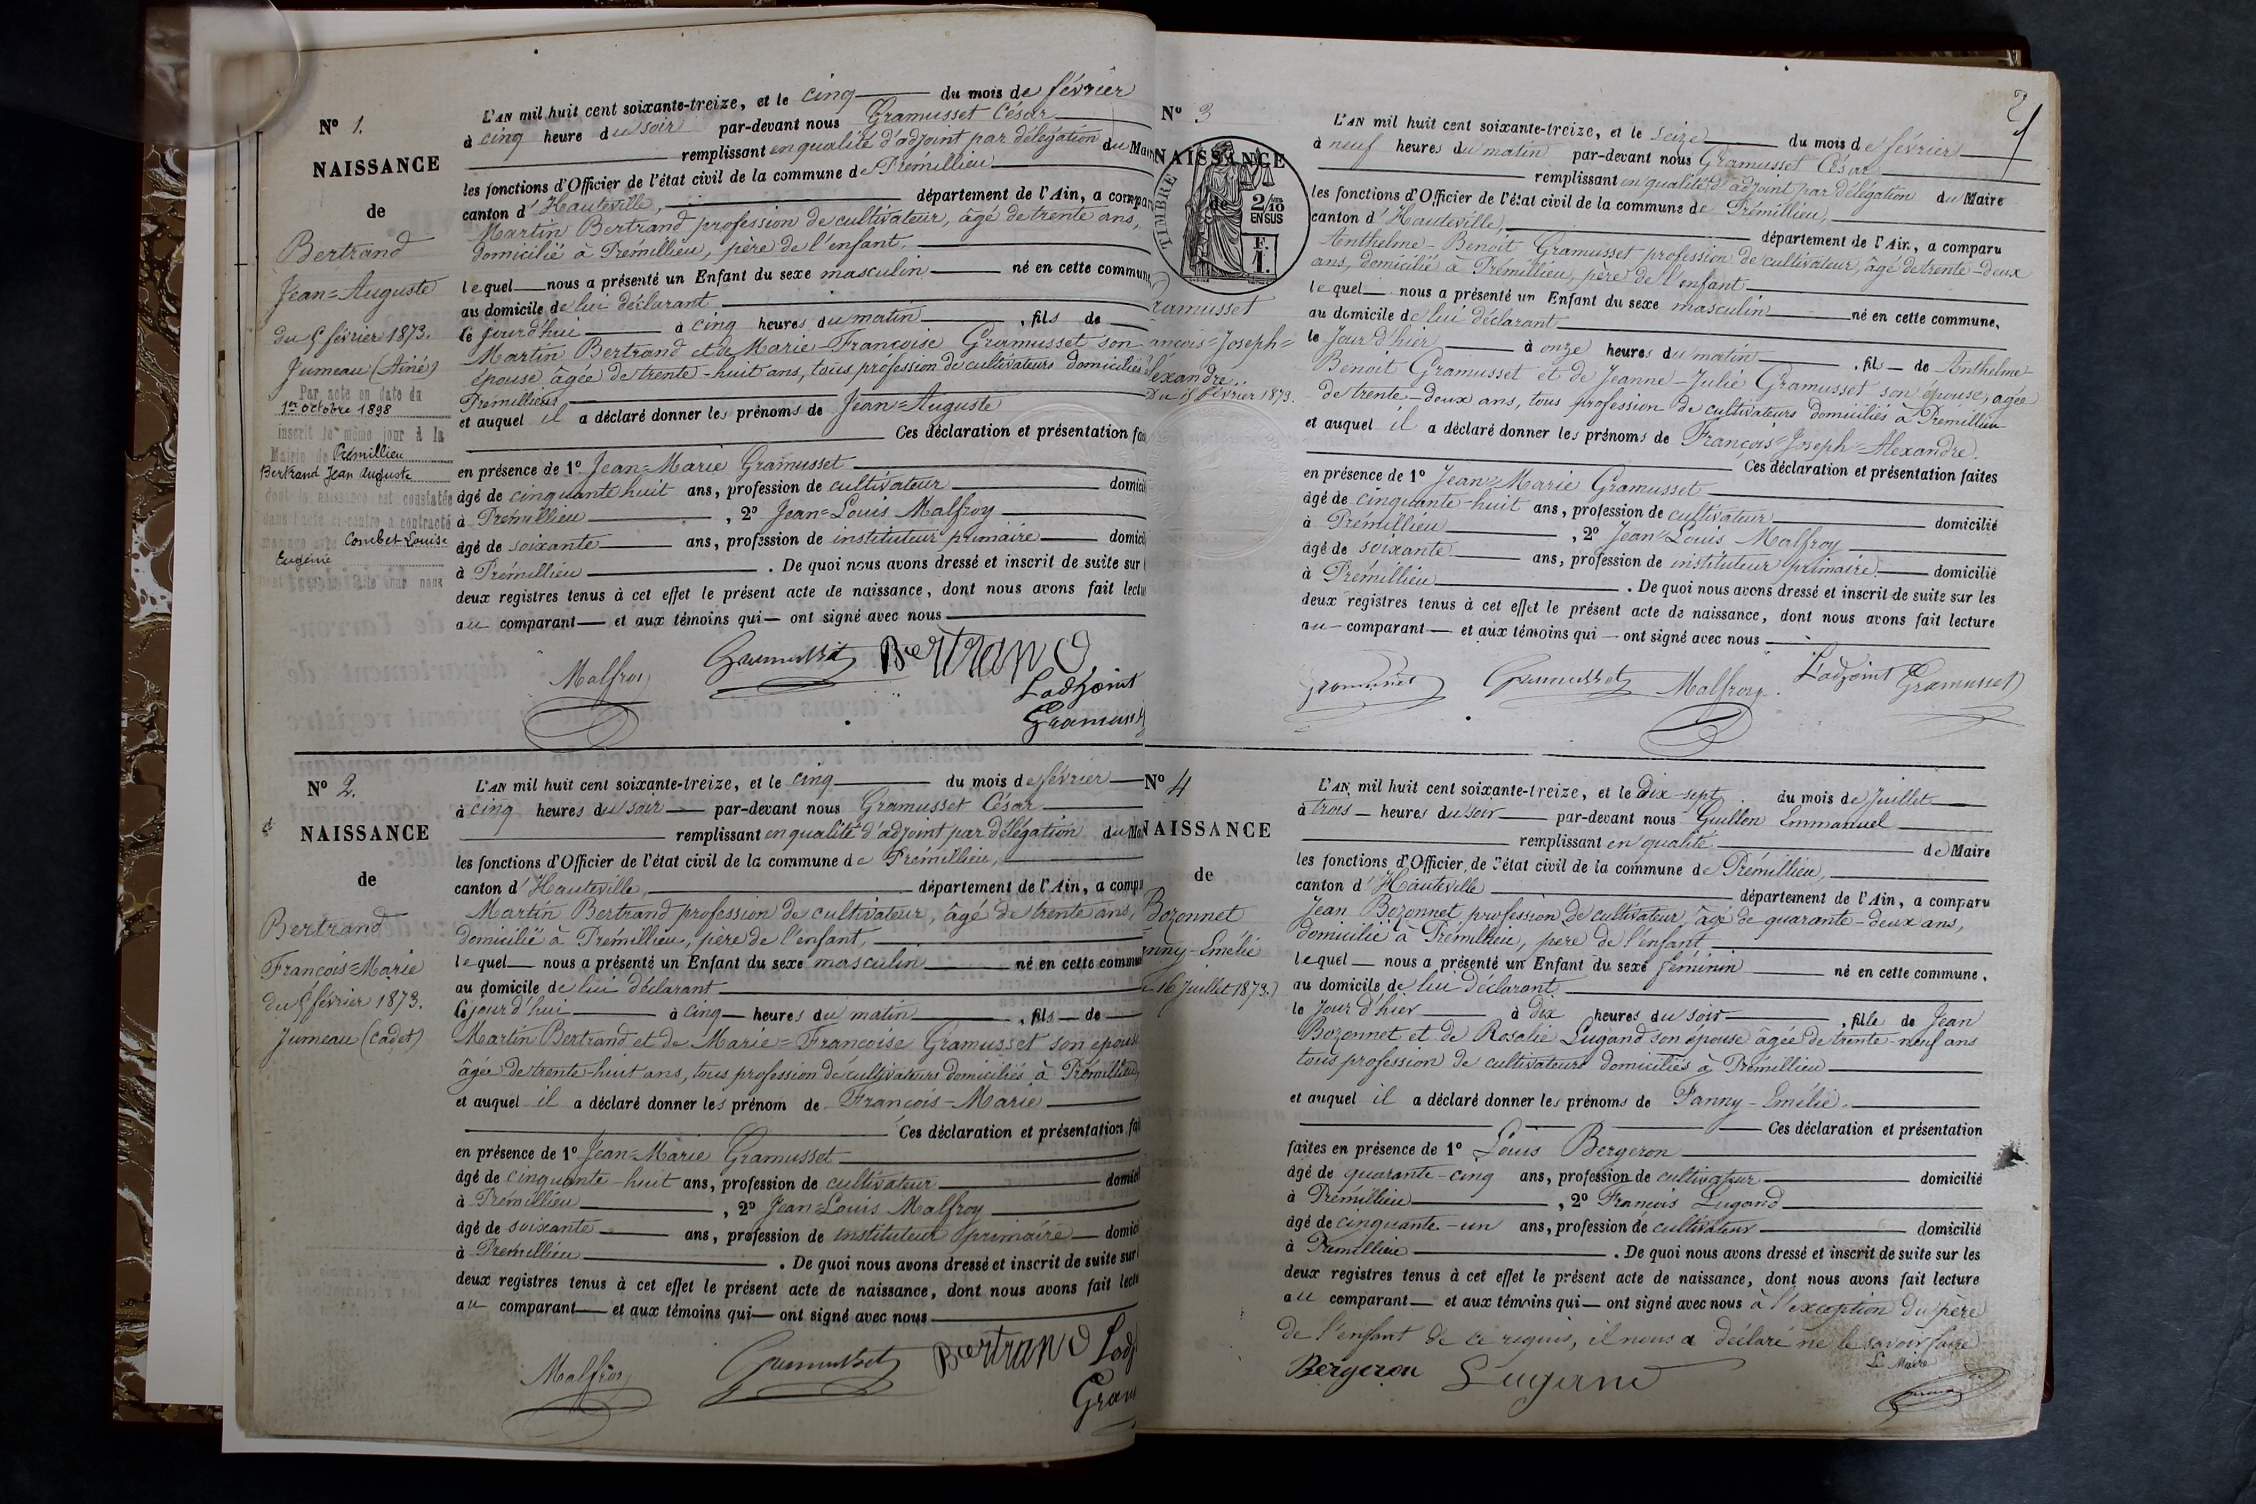 N° 1.
NAISSANCE
de
Bertrand
Jean=Auguste
du 5 février 1873.
Jumeau (Ainé)
Par acte en date du
1er octobre 1898
inscrit le même jour à la
Mairie de Prémillieu
Bertrand Jean Auguste
dont la naissance est constatée
dans l'acte ci-contre a contracté
Combet Louise
Eugénie
L'AN mil huit cent soixante-treize, et le cinq du mois de février
à cinq heure du soir par-devant nous Gramusset César
remplissant en qualité d'adjoint par délégation du Mair
les fonctions d'Officier de l'état civil de la commune de Prémillieu
canton d'Hauteville, département de l'Ain, a compar
Martin Bertrand profession de cultivateur, âgé de trente ans,
domicilié à Prémillieu, père de l'enfant,
lequel nous a présenté un Enfant du sexe masculin né en cette commune
au domicile de lui déclarant
le jourd'hui à cinq heures du matin, fils de
Martin Bertrand et de Marie-Françoise Gramusset son
épouse âgée de trente-huit ans, tous profession de cultivateurs domiciliés
Prémillieu,
et auquel il a déclaré donner les prénoms de Jean=Auguste
Ces déclaration et présentation fai
en présence de 1° Jean=Marie Gramusset
âgé de cinquante huit ans, profession de cultivateur domici
à Prémillieu, 2° Jean=Louis Malfroy
âgé de soixante ans, profession de instituteur primaire domici
à Prémillieu. De quoi nous avons dressé et inscrit de suite sur
deux registres tenus à cet effet le présent acte de naissance, dont nous avons fait lectu
au comparant et aux témoins qui ont signé avec nous
Malfroy Gramusset Bertrand
Ladjoint
Gramuss
N° 2.
NAISSANCE
de
Bertrand
François=Marie
du 5 février 1873.
Jumeau (cadet)
L'AN mil huit cent soixante-treize, et le cinq du mois de février
à cinq heures du soir par-devant nous Gramusset César
remplissant en qualité d'adjoint par délégation du Ma
les fonctions d'Officier de l'état civil de la commune de Prémillieu,
canton d'Hauteville, département de l'Ain, a compa
Martin Bertrand profession de cultivateur, âgé de trente ans,
domicilié à Prémillieu, père de l'enfant,
lequel nous a présenté un Enfant du sexe masculin né en cette commun
au domicile de lui déclarant
Cejourd'hui à cinq heures du matin, fils de
Martin Bertrand et de Marie=Françoise Gramusset son épouse
âgée de trente-huit ans, tous profession de cultivateurs domiciliés à Prémillieu,
et auquel il a déclaré donner les prénom de François-Marie
Ces déclaration et présentation fai
en présence de 1° Jean=Marie Gramusset
âgé de cinquante-huit ans, profession de cultivateur domici
à Prémillieu, 2° Jean=Louis Malfroy
âgé de soixante ans, profession de instituteur primaire domici
à Prémillieu. De quoi nous avons dressé et inscrit de suite sur
deux registres tenus à cet effet le présent acte de naissance, dont nous avons fait lectu
au comparant et aux témoins qui ont signé avec nous
Malfroy Gramusset Bertrand Ladj
Gram
2
N° 3
NAISSANCE
de
TIMBRE
2/10
EN SUS
F.
1.
Gramusset
ancois=Joseph=
lexandre.
du 15 février 1873.
L'AN mil huit cent soixante-treize, et le seize du mois de février
à neuf heures du matin par-devant nous Gramusset César
remplissant en qualité d'adjoint par délégation du Maire
les fonctions d'Officier de l'état civil de la commune de Prémillieu,
canton d'Hauteville, département de l'Ain, a comparu
Anthelme-Benoit Gramusset profession de cultivateur, âgé de trente-deux
ans, domicilié à Prémillieu, père de l'enfant
lequel nous a présenté un Enfant du sexe masculin né en cette commune,
au domicile de lui déclarant
le Jour d'hier à onze heures du matin, fils de Anthelme
Benoit Gramusset et de Jeanne-Julie Gramusset son épouse, agée
de trente-deux ans, tous profession de cultivateurs domiciliés à Prémillieu
et auquel il a déclaré donner les prénoms de François=Joseph=Alexandre.
Ces déclaration et présentation faites
en présence de 1° Jean=Marie Gramusset
âgé de cinquante-huit ans, profession de cultivateur domicilié
à Prémillieu, 2° Jean=Louis Malfroy
âgé de soixante ans, profession de instituteur primaire domicilié
à Prémillieu. De quoi nous avons dressé et inscrit de suite sur les
deux registres tenus à cet effet le présent acte de naissance, dont nous avons fait lecture
au comparant et aux témoins qui ont signé avec nous
Gramusset Gramusset Malfroy L'adjoint Gramusset
N° 4
NAISSANCE
de
Bozonnet
nny-Emélie
16 Juillet 1873.)
L'AN mil huit cent soixante-treize, et le Dix-sept du mois de Juillet
à trois heures du soir par-devant nous Guillon Emmanuel
remplissant en qualité de Maire
les fonctions d'Officier de l'état civil de la commune de Prémillieu,
canton d'Hauteville département de l'Ain, a comparu
Jean Bozonnet profession de cultivateur âgé de quarante-deux ans,
domicilié à Prémillieu, père de l'enfant
lequel nous a présenté un Enfant du sexe féminin né en cette commune,
au domicile de lui déclarant.
le Jour d'hier à dix heures du soir, fille de Jean
Bozonnet et de Rosalie Lugand son épouse âgée de trente-neuf ans
tous profession de cultivateurs domiciliés à Prémillieu
et auquel il a déclaré donner les prénoms de Fanny-Emélie.
Ces déclaration et présentation
faites en présence de 1° Louis Bergeron
âgé de quarante-cinq ans, profession de cultivateur domicilié
à Prémillieu, 2° François Lugand
âgé de cinquante-un ans, profession de cultivateur domicilié
à Prémillieu. De quoi nous avons dressé et inscrit de suite sur les
deux registres tenus à cet effet le présent acte de naissance, dont nous avons fait lecture
au comparant et aux témoins qui ont signé avec nous à l'exception du père
de l'enfant de ce requis, il nous a déclaré ne le savoir faire
Le Maire
Bergeron Lugand